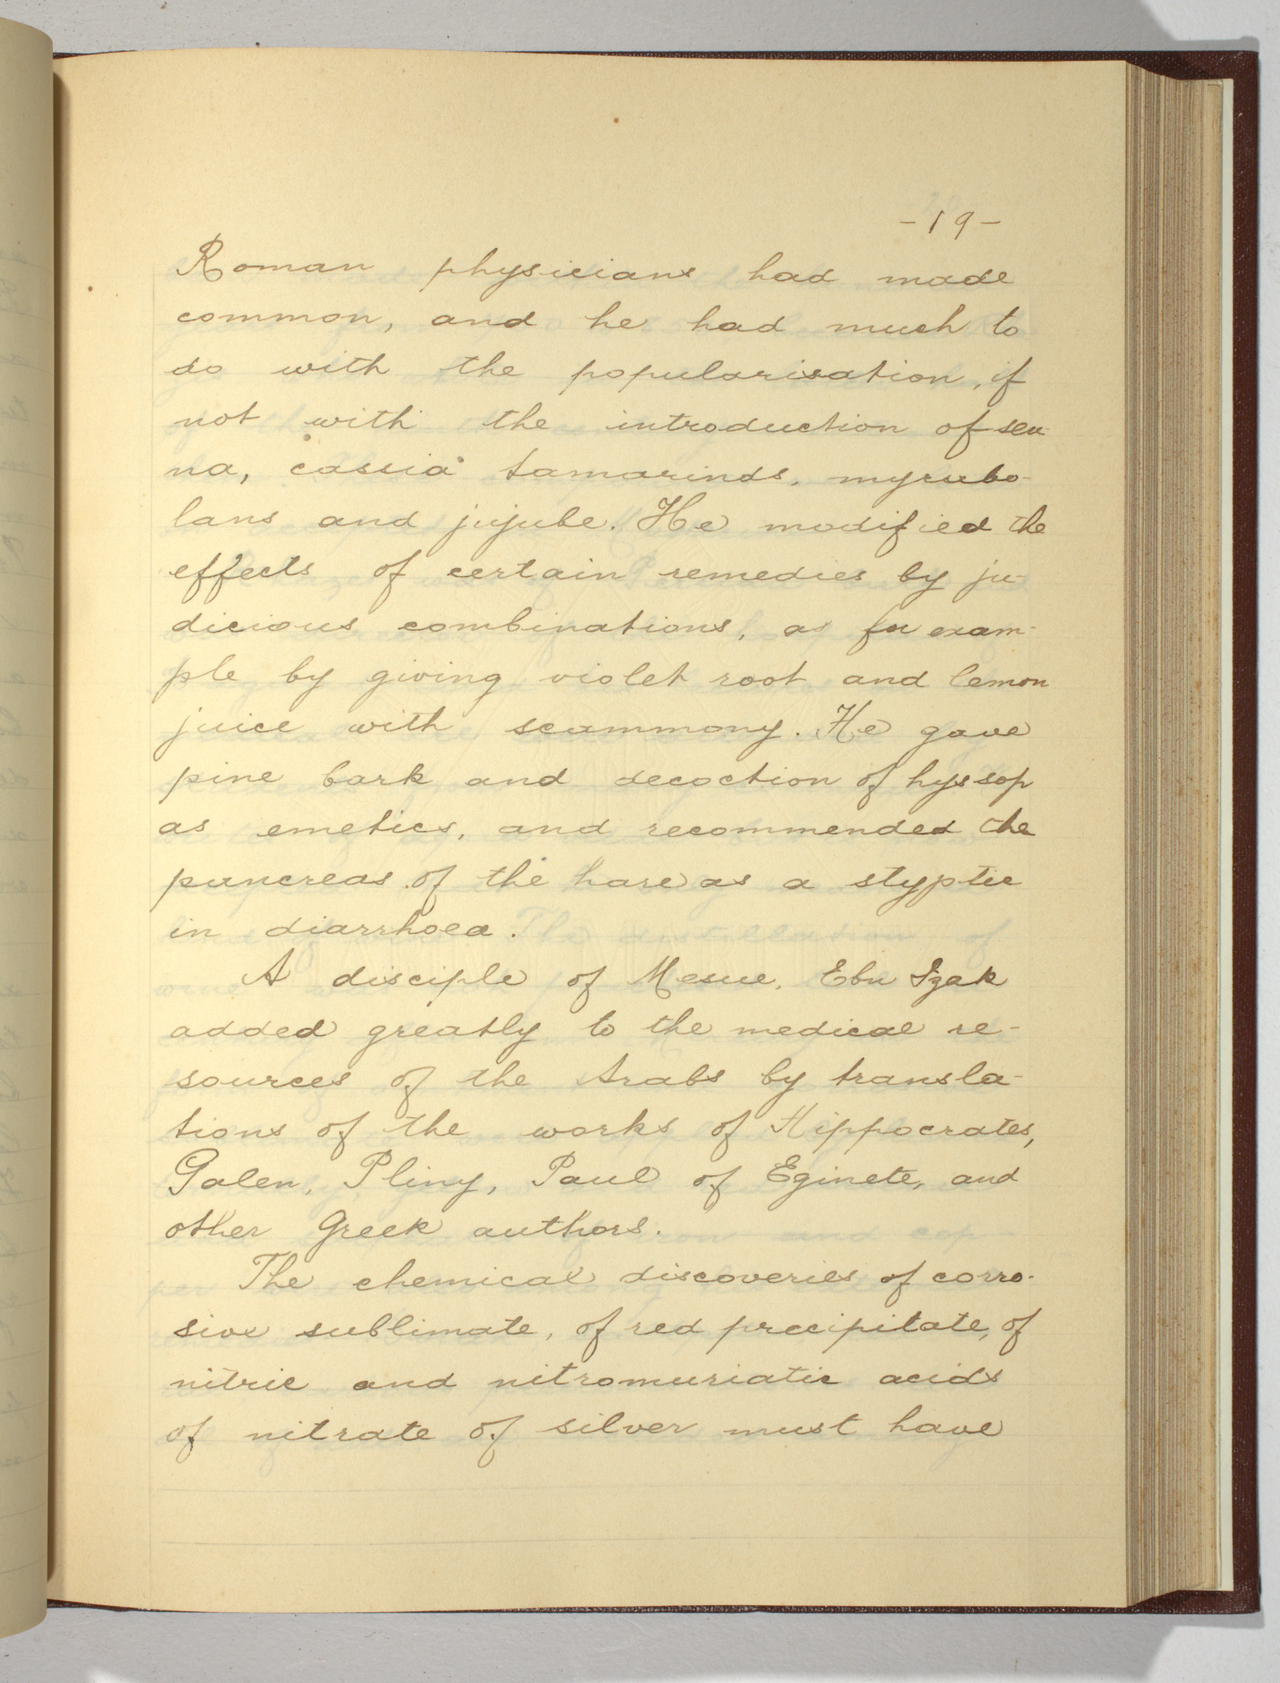 -19-
Roman physicians had made
common, and he had much to
do with the popularisation, if
not with the introduction of sen
na, cassia tamarinds, myrobo-
lans and jujube. He modified the
effects of certain remedies by ju-
dicious combinations, as for exam-
ple by giving violet root and lemon
juice with scammony. He gave
pine bark and decoction of hyssop
as emetics, and recommended the
pancreas of the hare as a styptic
in diarrhoea.
A disciple of Mesue, Ebn Izak
added greatly to the medical re-
sources of the Arabs by transla-
tions of the works of Hippocrates,
Galen, Pliny, Paul of Eginete, and
other Greek authors.
The chemical discoveries of corro-
sive sublimate, of red precipitate, of
nitric and nitromuriatic acids
of nitrate of silver must have